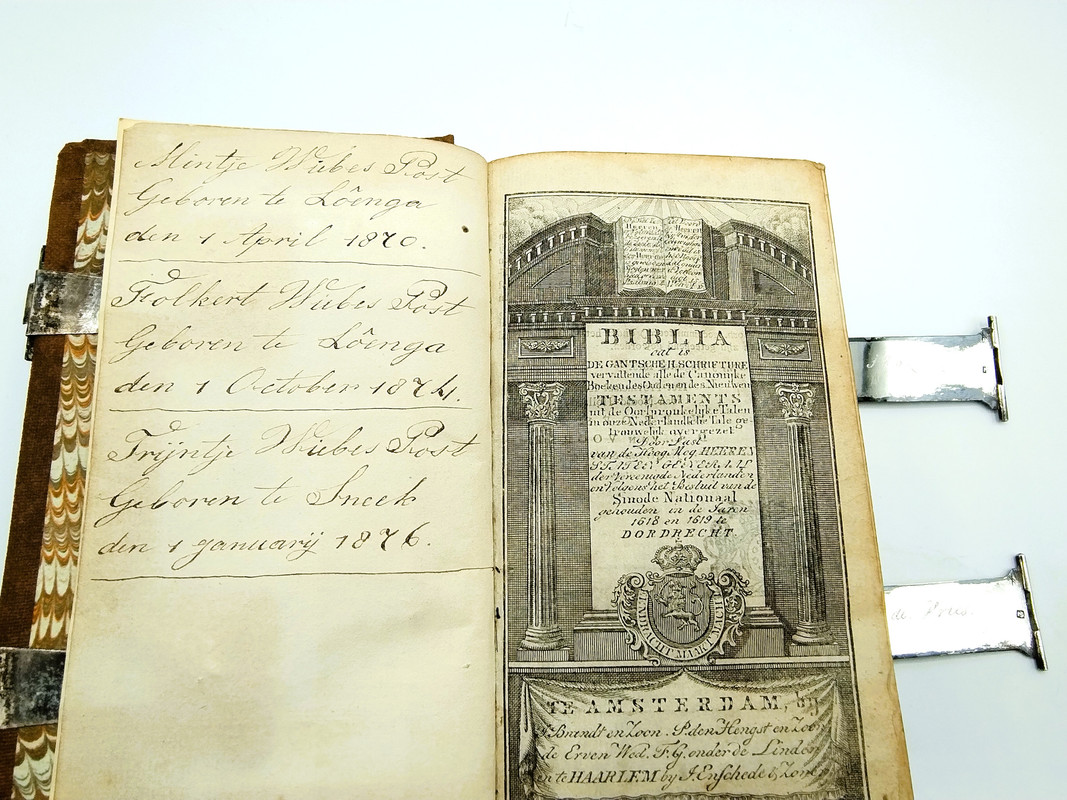 Mintje Wiebes Post
Geboren te Lôinga
den 1 April 1870.
Folkert Wiebes Post
Geboren te Lôinga
den 1 October 1874.
Trijntje Wiebes Post
Geboren te Sneek
den 1 januarij 1876.
BIBLIA
dat is
DE GANTSCHE H. SCHRIFTURE
vervattende alle de Canonijke
Boeken des Ouden en des Nieuwen
TESTAMENTS
uit de Oorspronkelijke Talen
in onze Nederlandsche Tale ge-
trouwelijk overgezet
Door Last
van de Hoog. Mog. HEEREN
STATEN GENERAAL
der Vereenigde Nederlanden
en Volgens het Besluit van de
Sinode Nationaal
gehouden in de Jaren
1618 en 1619 te
DORDRECHT.
EENDRAGT MAAKT MAGT
TE AMSTERDAM, by
Brandt en Zoon. P. den Hengst en Zoon
de Erven Wed. F. G. onder de Linden
en te HAARLEM by J. Enschedé & Zonen
de